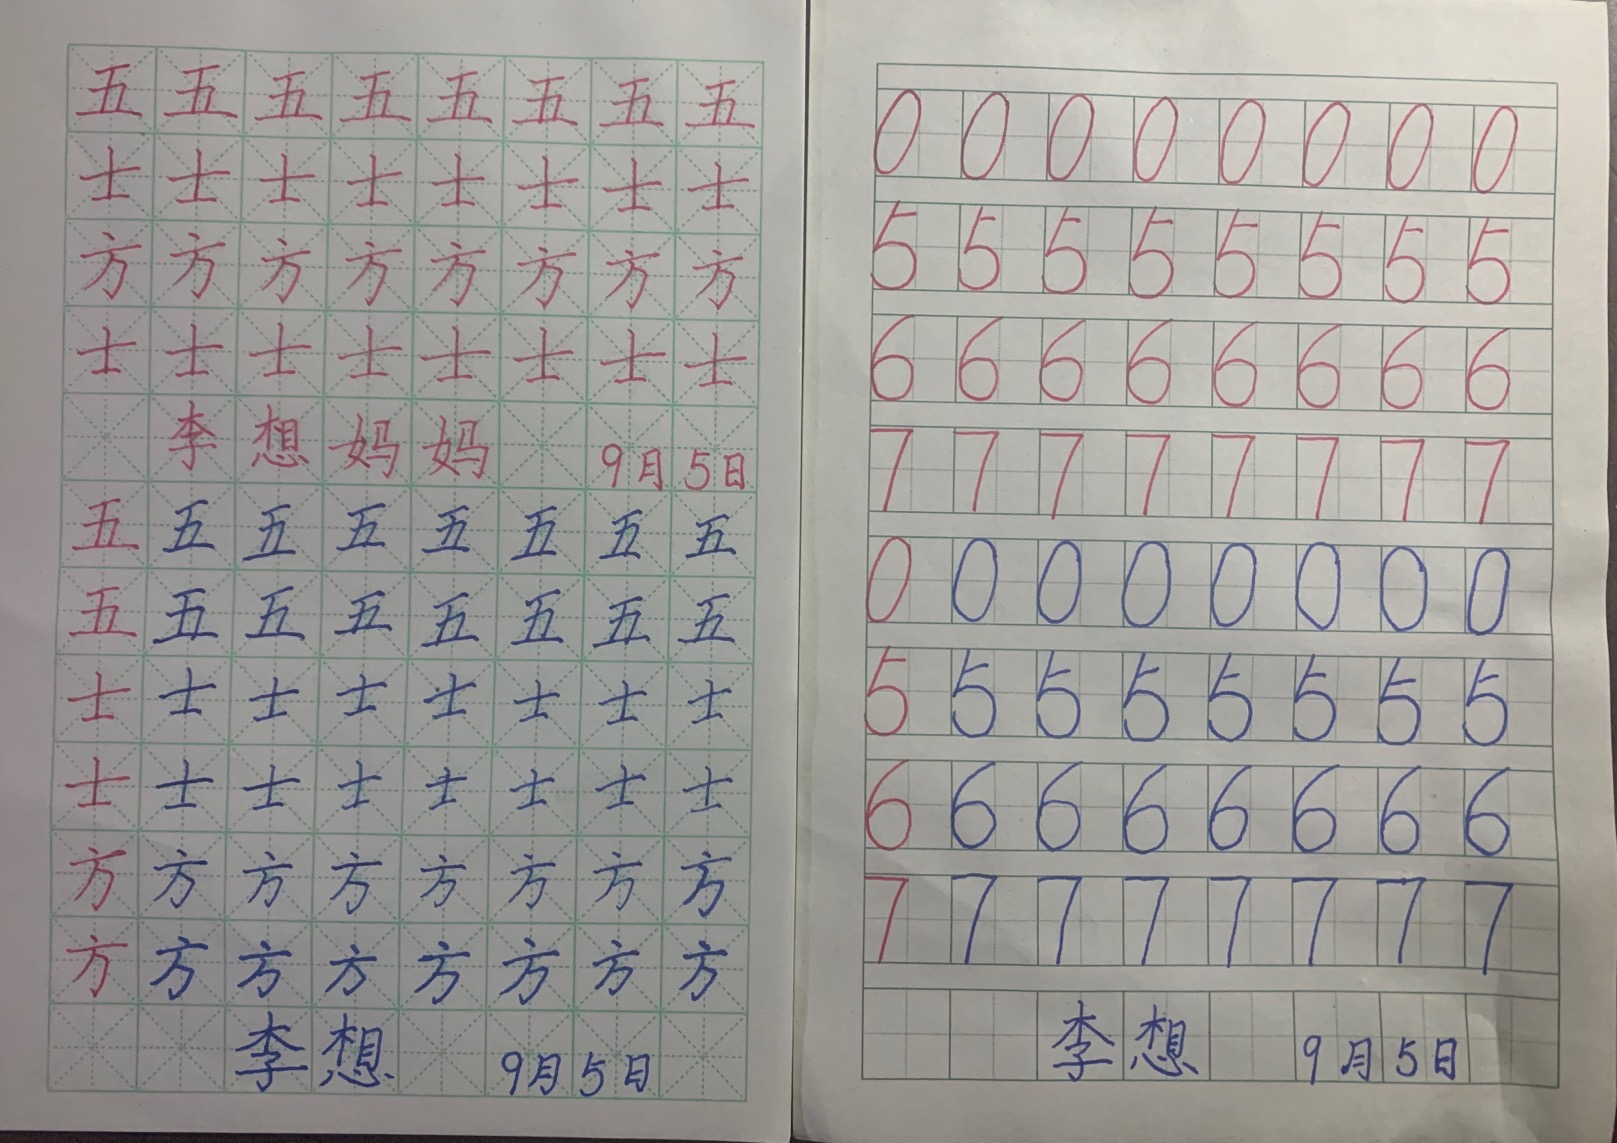 五五五五五五五五
士士士士士士士士
方方方方方方方方
士士士士士士士士
李想妈妈 9月5日
五五五五五五五五
五五五五五五五五
士士士士士士士士
士士士士士士士士
方方方方方方方方
方方方方方方方方
李想 9月5日
0 0 0 0 0 0 0 0
5 5 5 5 5 5 5 5
6 6 6 6 6 6 6 6
7 7 7 7 7 7 7 7
0 0 0 0 0 0 0 0
5 5 5 5 5 5 5 5
6 6 6 6 6 6 6 6
7 7 7 7 7 7 7 7
李想 9月5日